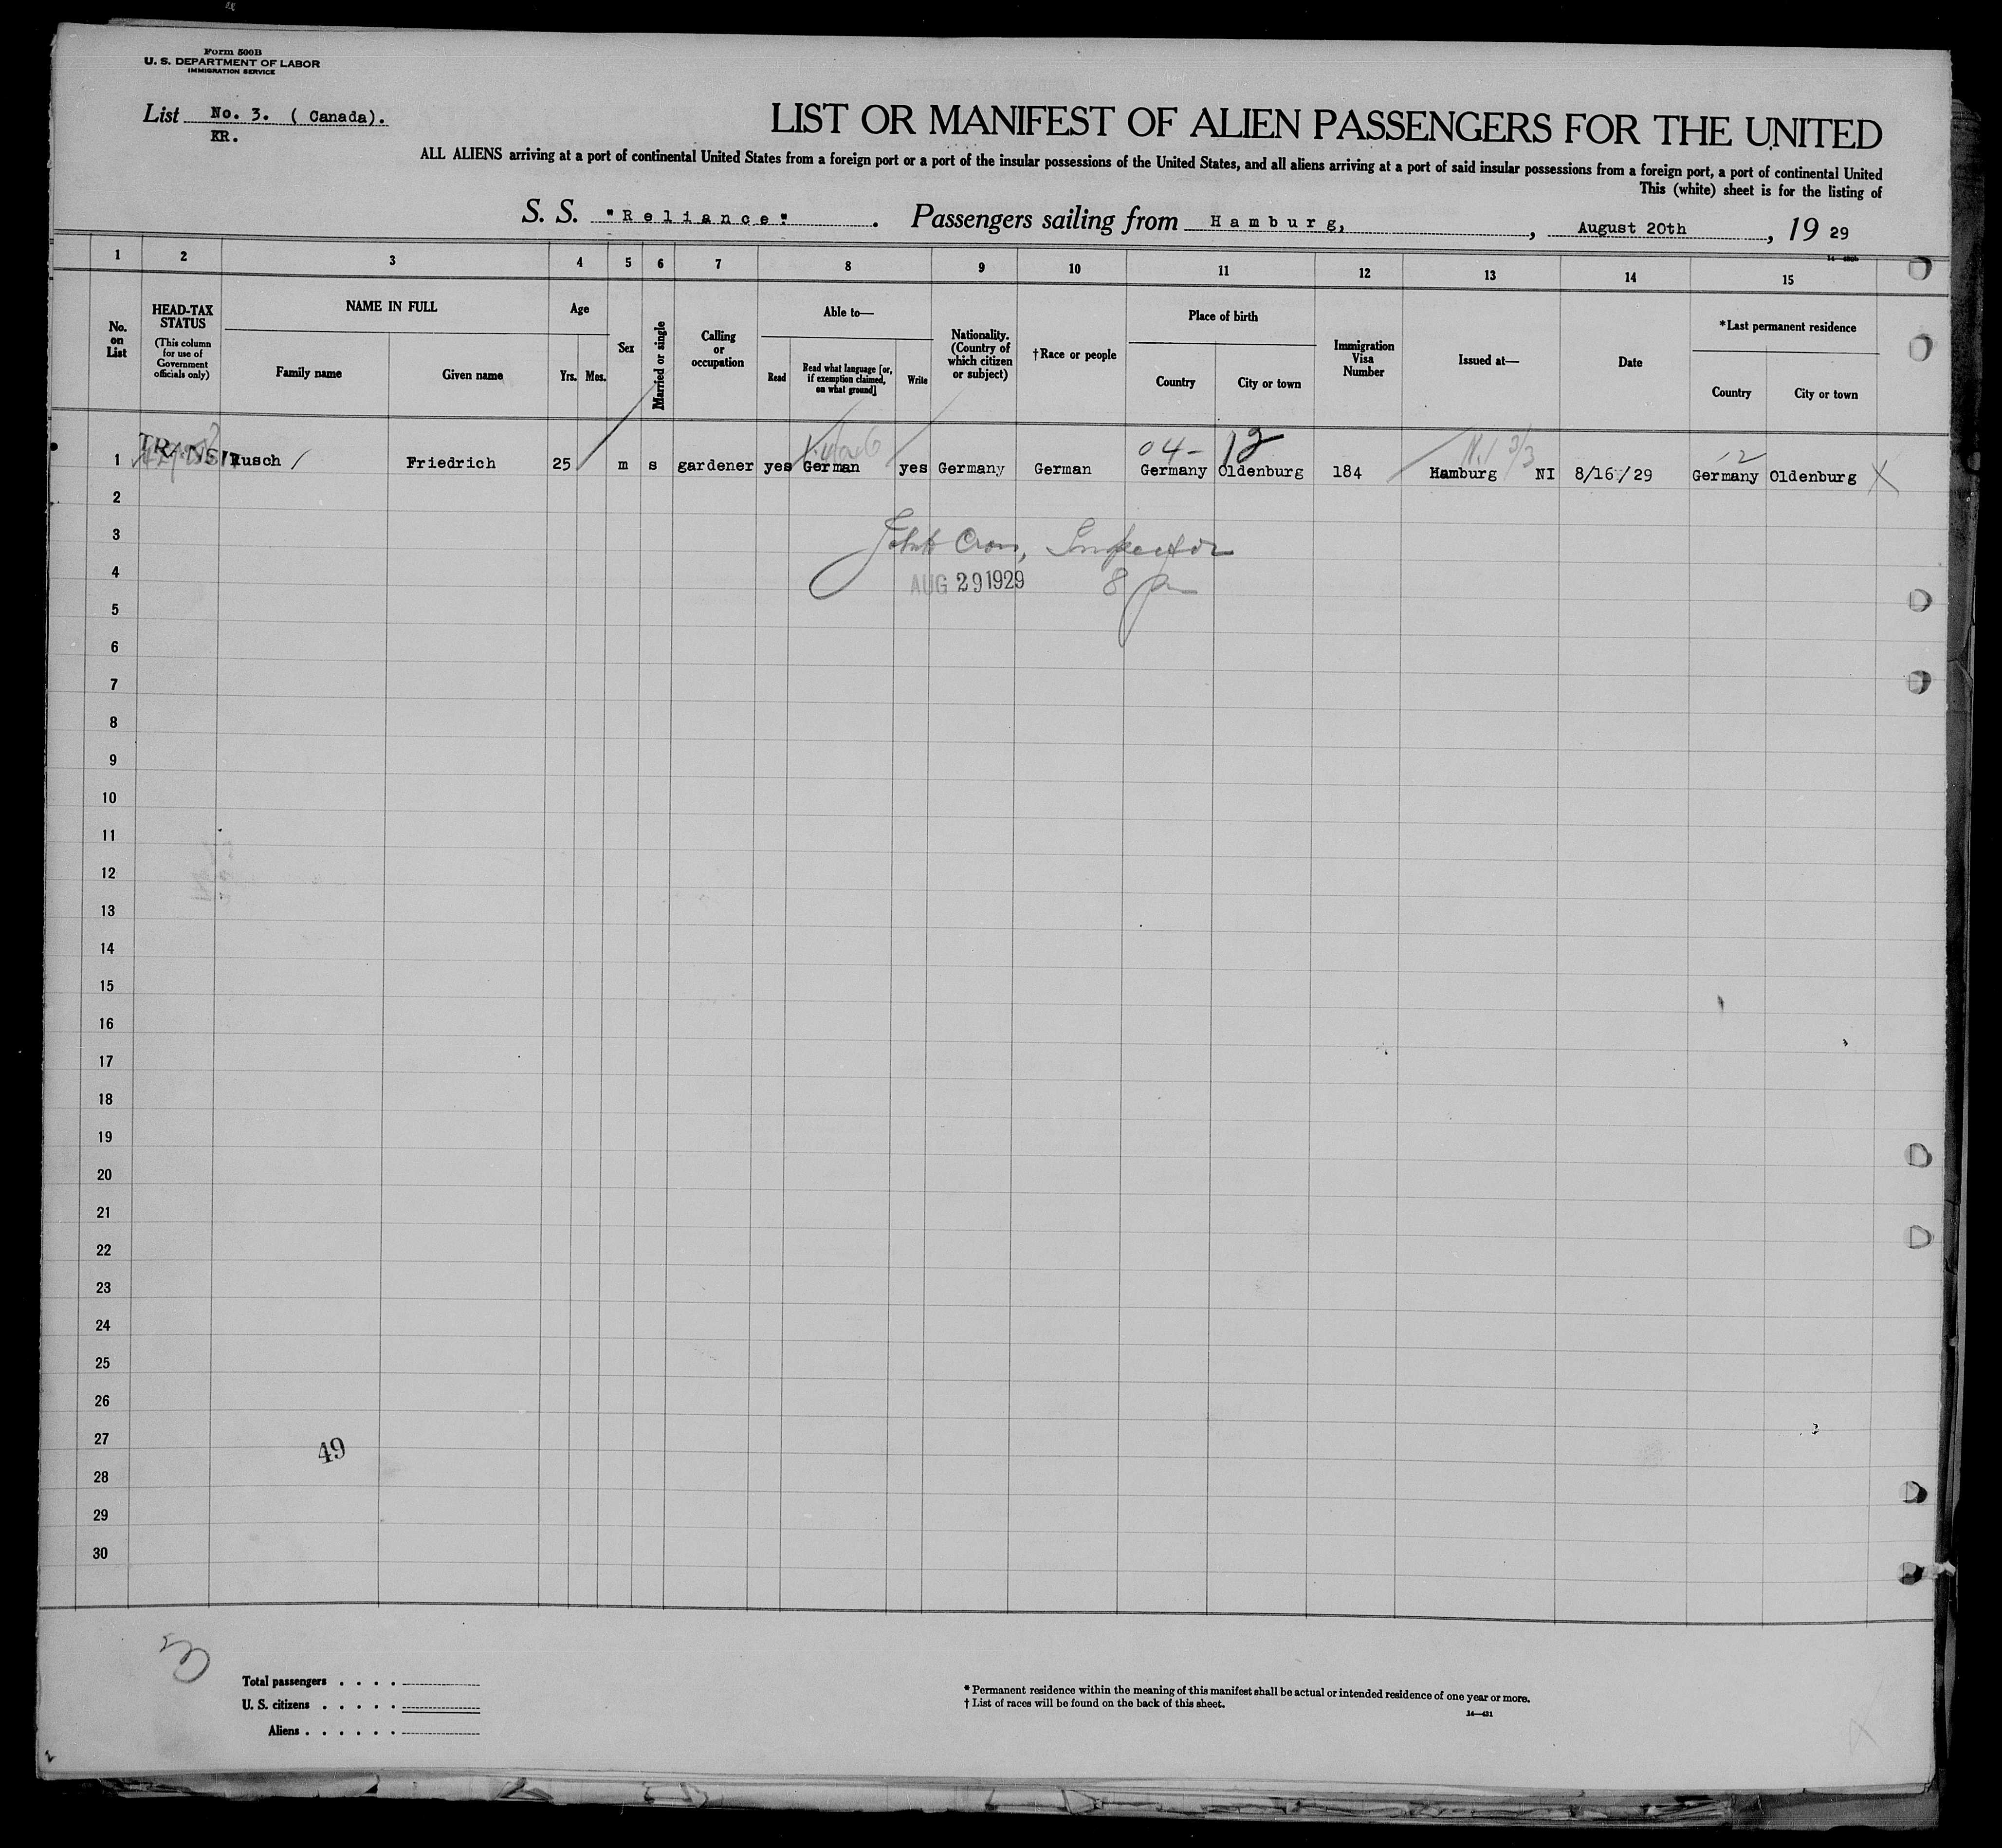 Form 500B
U. S. DEPARTMENT OF LABOR
IMMIGRATION SERVICE
List No. 3. ( Canada).
KR.
LIST OR MANIFEST OF ALIEN PASSENGERS FOR THE UNITED
ALL ALIENS arriving at a port of continental United States from a foreign port or a port of the insular possessions of the United States, and all aliens arriving at a port of said insular possessions from a foreign port, a port of continental United
This (white) sheet is for the listing of
S. S. "Reliance". Passengers sailing from Hamburg, , August 20th , 19 29
1 2 3 4 5 6 7 8 9 10 11 12 13 14 15
No. on List
HEAD-TAX STATUS
(This column for use of Government officials only)
NAME IN FULL
Family name Given name
Age
Yrs. Mos.
Sex
Married or single
Calling or occupation
Able to—
Read
Read what language [or, if exemption claimed, on what ground]
Write
Nationality. (Country of which citizen or subject)
†Race or people
Place of birth
Country City or town
Immigration Visa Number
Issued at—
Date
*Last permanent residence
Country City or town
04- 12
12
1 TRANSIT Rusch Friedrich 25 m s gardener yes German yes Germany German Germany Oldenburg 184 Hamburg NI 8/16/29 Germany Oldenburg X
2
3
Inspector
4
AUG 29 1929 8 pm
5
6
7
8
9
10
11
12
13
14
15
16
17
18
19
20
21
22
23
24
25
26
27
49
28
29
30
Total passengers . . . .
U. S. citizens . . . . .
Aliens . . . . . .
* Permanent residence within the meaning of this manifest shall be actual or intended residence of one year or more.
† List of races will be found on the back of this sheet.
14—431